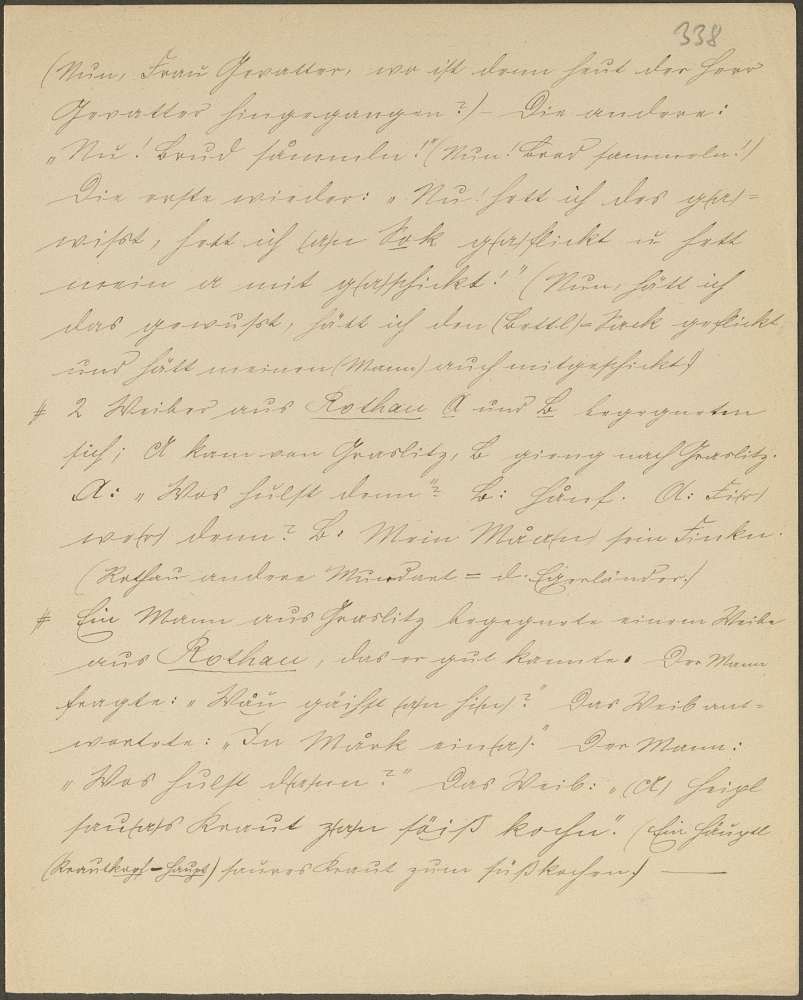 338
(Nun, Frau Gevatter, wo ist denn heut der Herr
Gevatter hingegangen?) – Die andere:
„Nu! Brud såmmeln!" (Nun! Brod sammeln!)
Die erste wieder: „Nu! hett ich des g(a)=
wißt, hett ich (a)n Sok g(a)flickt u hett
mein a mit g(a)schickt!" (Nun, hätt ich
das gewußt, hätt ich den (Bettl)=Sack geflickt
und hätt meinen (Mann) auch mitgeschickt!)
# 2 Weiber aus Rothau A und B begegneten
sich; A kam von Graslitz, B gieng nach Graslitz.
A: „Wos hulst denn"? B: Hånf. A: Fi(r)
we(r) denn? B: Mein Måa(n) sein Finkn.
(Rothau andere Mundart = d. Egerländer.)
# Ein Mann aus Graslitz begegnete einem Weibe
aus Rothau, das er gut kannte. Der Mann
fragte: „Wåu gäihst (a)n hi(n)?" Das Weib ant=
wortete: „In Mårk ein(a)." Der Mann:
„Wos hulst d(a)nn?" Das Weib: „(A) Heipl
sau(a)s Kraut z(a)n söiß kochn." (Ein Häuptl
(Krautkopf – Haupt) saures Kraut zum süßkochen.) —